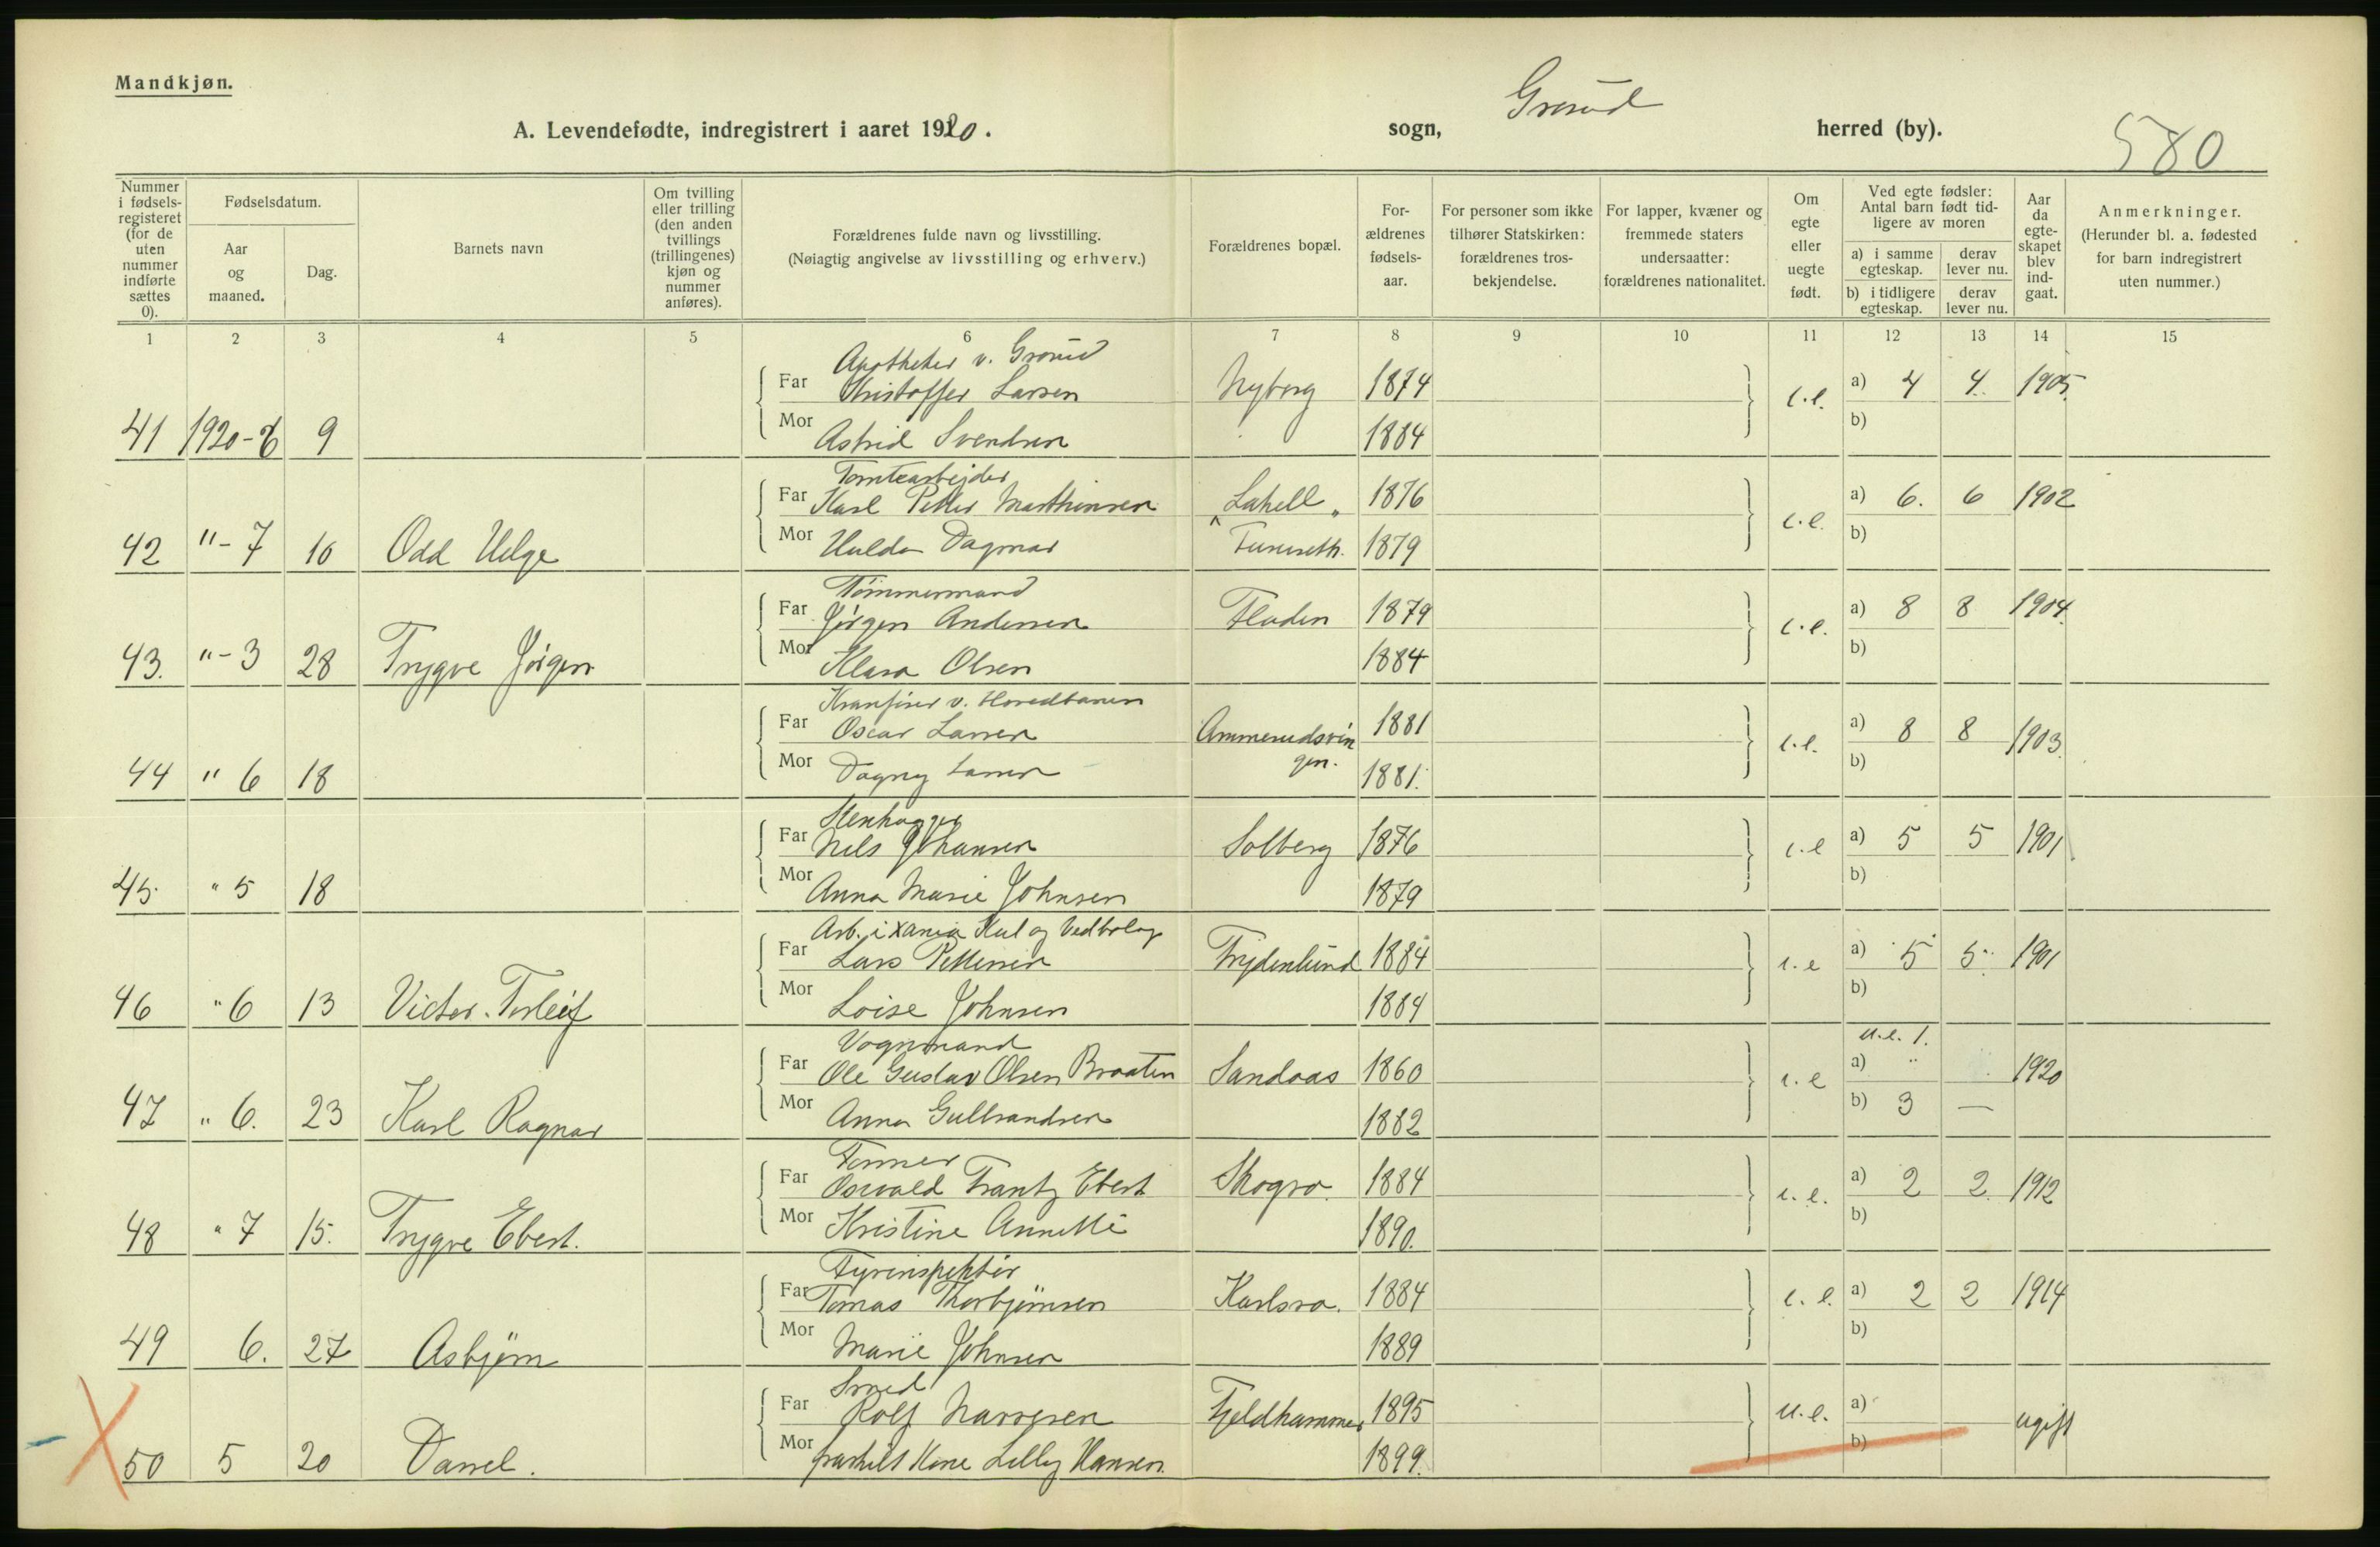 Mandkjøn.
A. Levendefødte, indregistrert i aaret 1920.
sogn, Grorud herred (by).
580
Nummer i fødsels-registeret (for de uten nummer indførte sættes 0).
Fødselsdatum.
Aar og maaned.
Dag.
Barnets navn
Om tvilling eller trilling (den anden tvillings (trillingenes) kjøn og nummer anføres).
Forældrenes fulde navn og livsstilling.
(Nøiagtig angivelse av livsstilling og erhverv.)
Forældrenes bopæl.
For-ældrenes fødsels-aar.
For personer som ikke tilhører Statskirken: forældrenes tros-bekjendelse.
For lapper, kvæner og fremmede staters undersaatter: forældrenes nationalitet.
Om egte eller uegte født.
Ved egte fødsler: Antal barn født tid-ligere av moren
a) i samme egteskap. derav lever nu.
b) i tidligere egteskap. derav lever nu.
Aar da egte-skapet blev ind-gaat.
Anmerkninger.
(Herunder bl. a. fødested for barn indregistrert uten nummer.)
1 2 3 4 5 6 7 8 9 10 11 12 13 14 15
Apotheker v. Grorud
Far Kristoffer Larsen Nyborg 1874 a) 4 4. 1905
41 1920-6 9 Mor Astrid Svendsen 1884 e.e. b)
Tomtearbejder
Far Karl Petter Marthinsen "Lahell" 1876 a) 6. 6 1902
42 "-7 16 Odd Helge Mor Hulda Dagmar Furuseth. 1879 e.e. b)
Tømmermand
Far Jørgen Andersen Fladen 1879 a) 8 8 1904.
43. "-3 28 Trygve Jørgen Mor Klara Olsen 1884 e.e. b)
Kranfører v. Hovedbanen
Far Oscar Larsen Ammerudsvin 1881 a) 8 8 1903.
44 " 6 18 Mor Dagny Larsen gen. 1881. e.e. b)
Stenhugger
Far Nils Johansen Solberg 1876 a) 5 5 1901
45. " 5 18 Mor Anna Marie Johnsen 1879 e.e b)
Arb. i Xania Kul og Vedbolag
Far Lars Pettersen Frydenlund 1884 a) 5 5 1901
46 " 6 13 Victor. Torleif Mor Loise Johnsen 1884 e.e b)
Vognmand u.e. 1.
Far Ole Gustav Olsen Braaten Sandaas 1860 a) " 1920
47 " 6. 23 Karl Ragnar Mor Anna Gulbrandsen 1882 e.e b) 3 —
Former
Far Oswald Frantz Ebert Skogro. 1884 a) 2 2. 1912
48 " 7 15. Trygve Ebert. Mor Kristine Annette 1890. e.e. b)
Fyrinspektør
Far Tomas Thorbjørnsen Karlsro. 1884 a) 2 2 1914
49 6. 27 Asbjørn Mor Marie Johnsen 1889 e.e. b)
Smed
Far Rolf Fjeldhammer 1895 u.e. a) ugift
50 5 20 Mor fraskilt Kone Lilly Hansen. 1899. b)